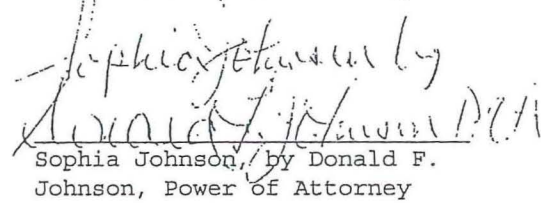 Sophia Johnson by
Donald F. Johnson POA
Sophia Johnson, by Donald F.
Johnson, Power of Attorney